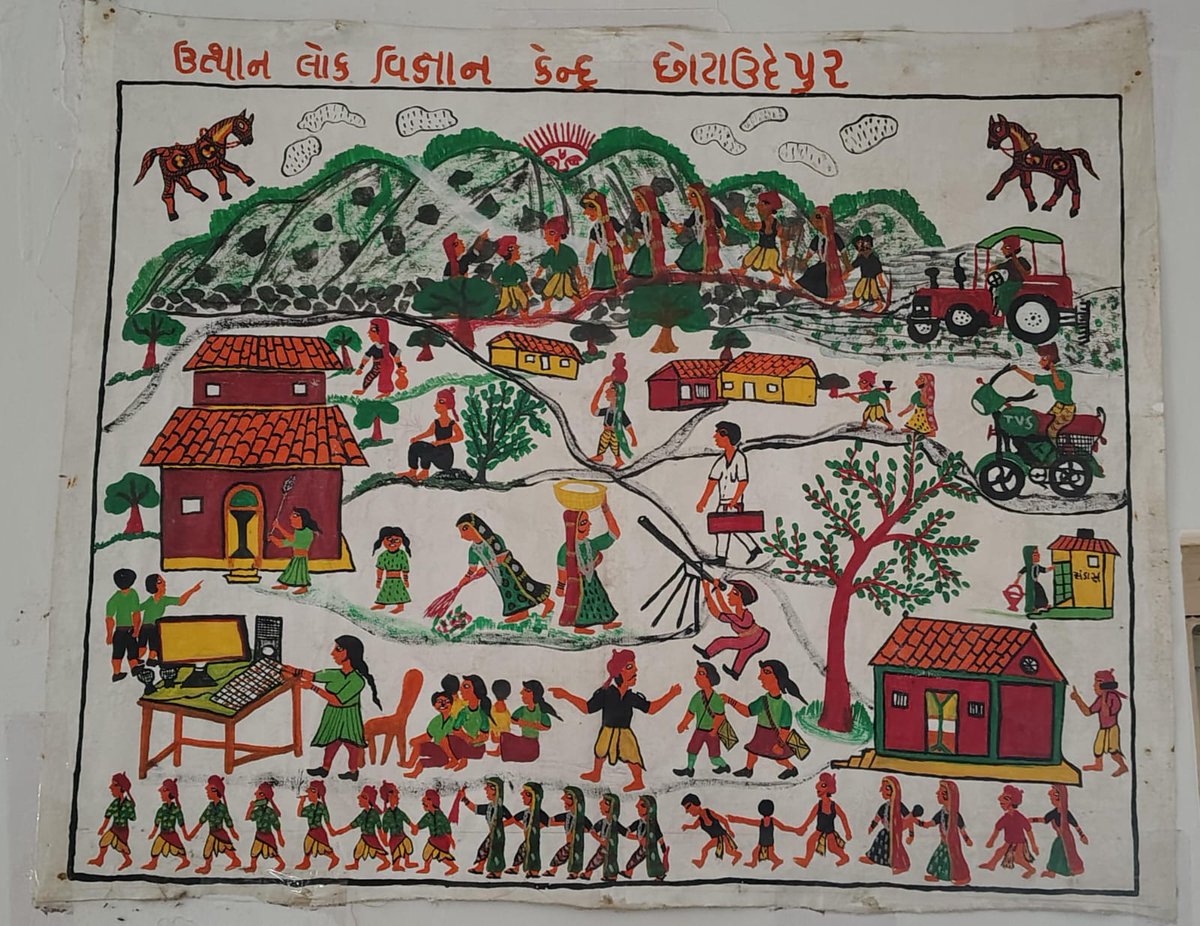 ઉત્થાન લોક વિજ્ઞાન કેન્દ્ર છોટાઉદેપુર
TVS
સંડાસ